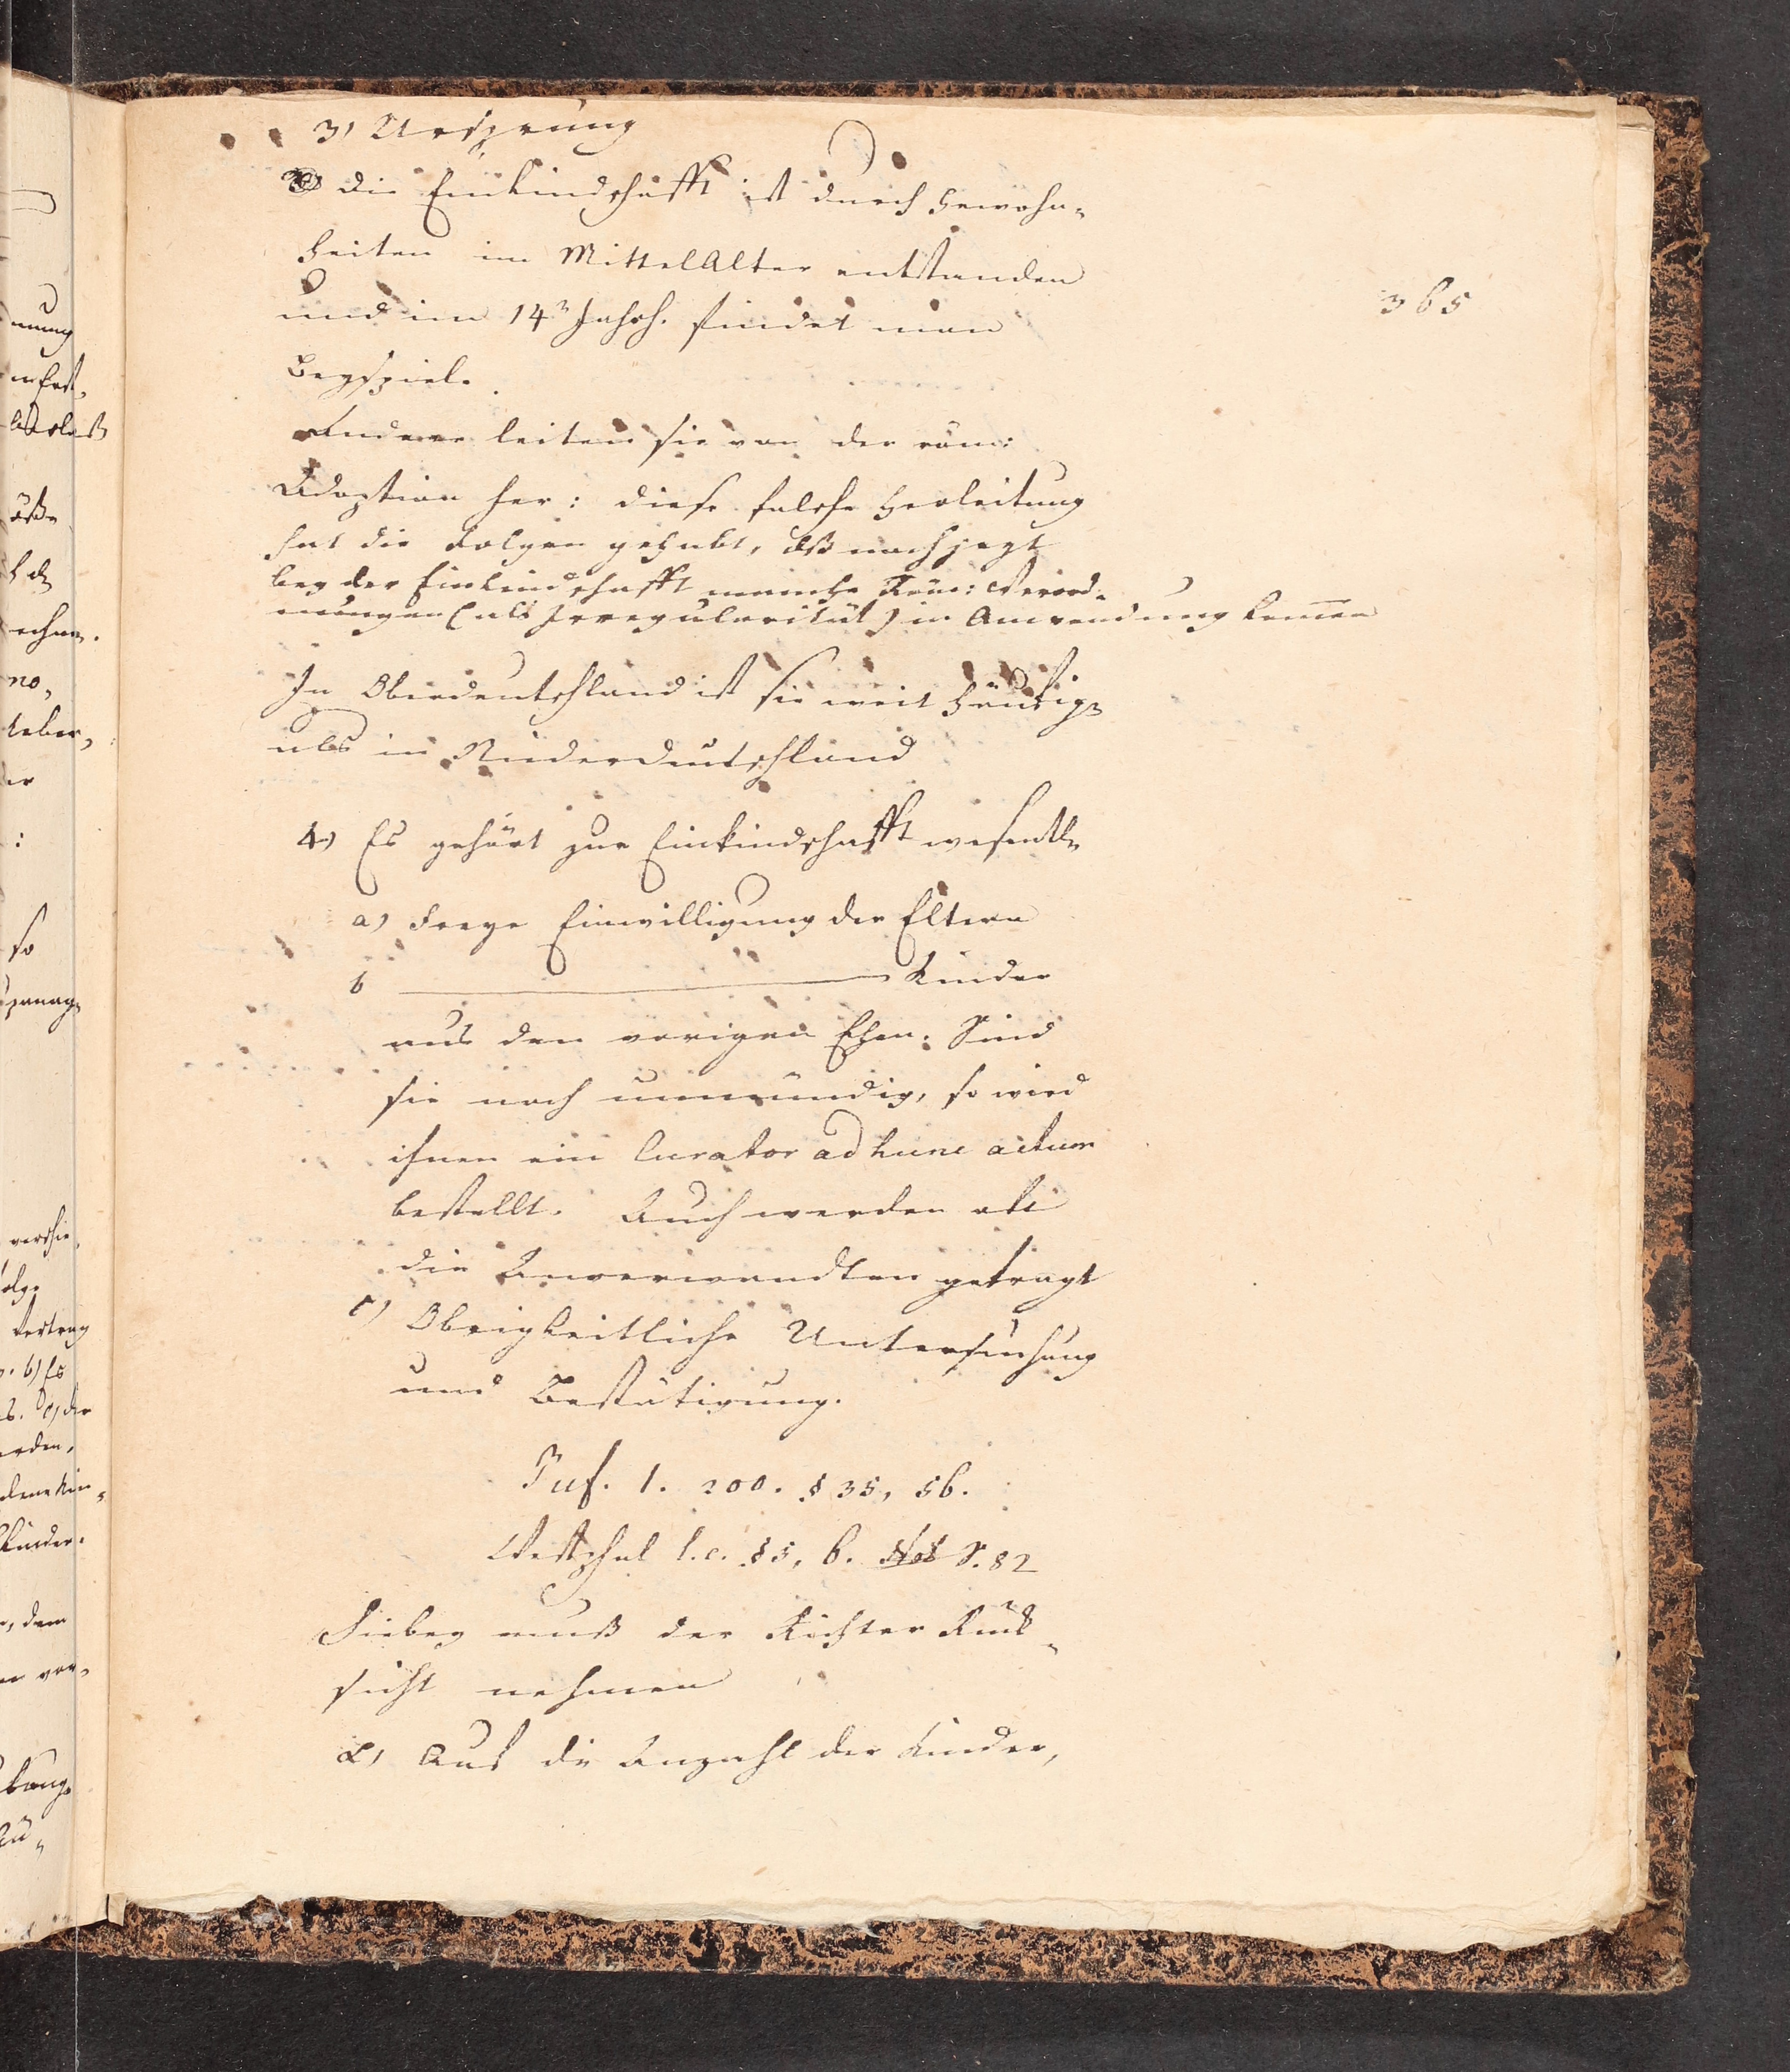 3) Ursprung
die Einkindschafft ist durch Gewohn-
heiten im MittelAlter entstanden
und im 14n Jahrh. findet man
365
Beyspiele.
Andere leiten sie von der röm:
Adoption her: diese falsche Herleitung
hat die Folgen gehabt, dß noch jezt
bey der Einkindschafft manche Röm: Verord-
nungen (als Irregularität) in Anwendung komen
In Oberdeutschland ist sie weit häufiger
als in Niederdeutschland
4) Es gehört zur Einkindschafft wesentl.
a) Freye Einwilligung der Eltern
b ———— Kinder
aus den vorigen Ehen. Sind
sie noch unmündig, so wird
ihnen ein Curator ad hunc actum
bestellt. Auch werden oft
die Anverwandten gefragt
c) Obrigkeitliche Untersuchung
und Bestätigung.
Puf. 1. 200. § 35, 56.
Westphal l.c. § 5, 6. S. 82
Hiebey muß der Richter Rück-
sicht nehmen
α) Auf die Anzahl der Kinder,